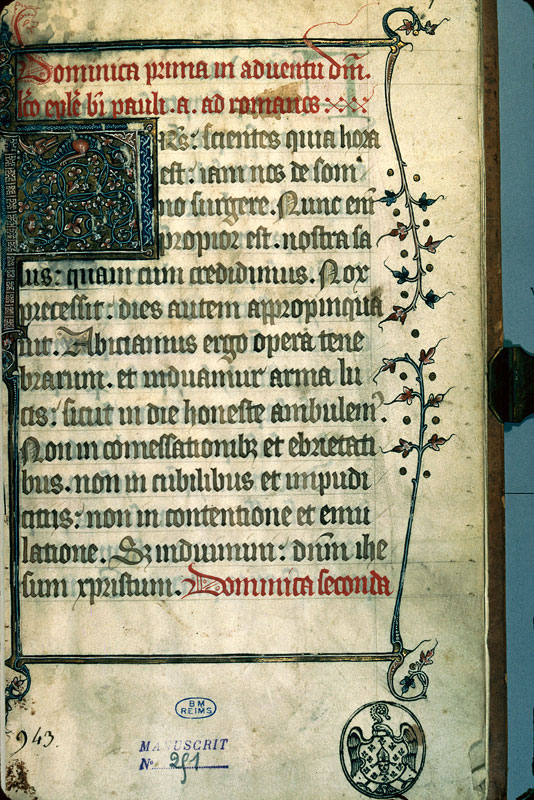 Dominica prima in adventu dm̄.
lc̄o ep̄le bī pauli. a. ad romanos
ꝛēs: scientes quia hora
est: iam nos de som
no surgere. Nunc enī
propior est. nostra sa
lus: quam cum credidimus. Nox
precessit: dies autem appropinqua
uit. Abiciamus ergo opera tene
brarum. et induamur arma lu
cis: sicut in die honeste ambulem᷒.
Non in comessationibꝫ et ebrietati
bus. non in cubilibus et impudi
citiis: non in contentione et emu
latione. Sꝫ induimini: dnm̄ ihe
sum xpristum. Dominica seconda
BM
REIMS
943.
MANUSCRIT
N° 251